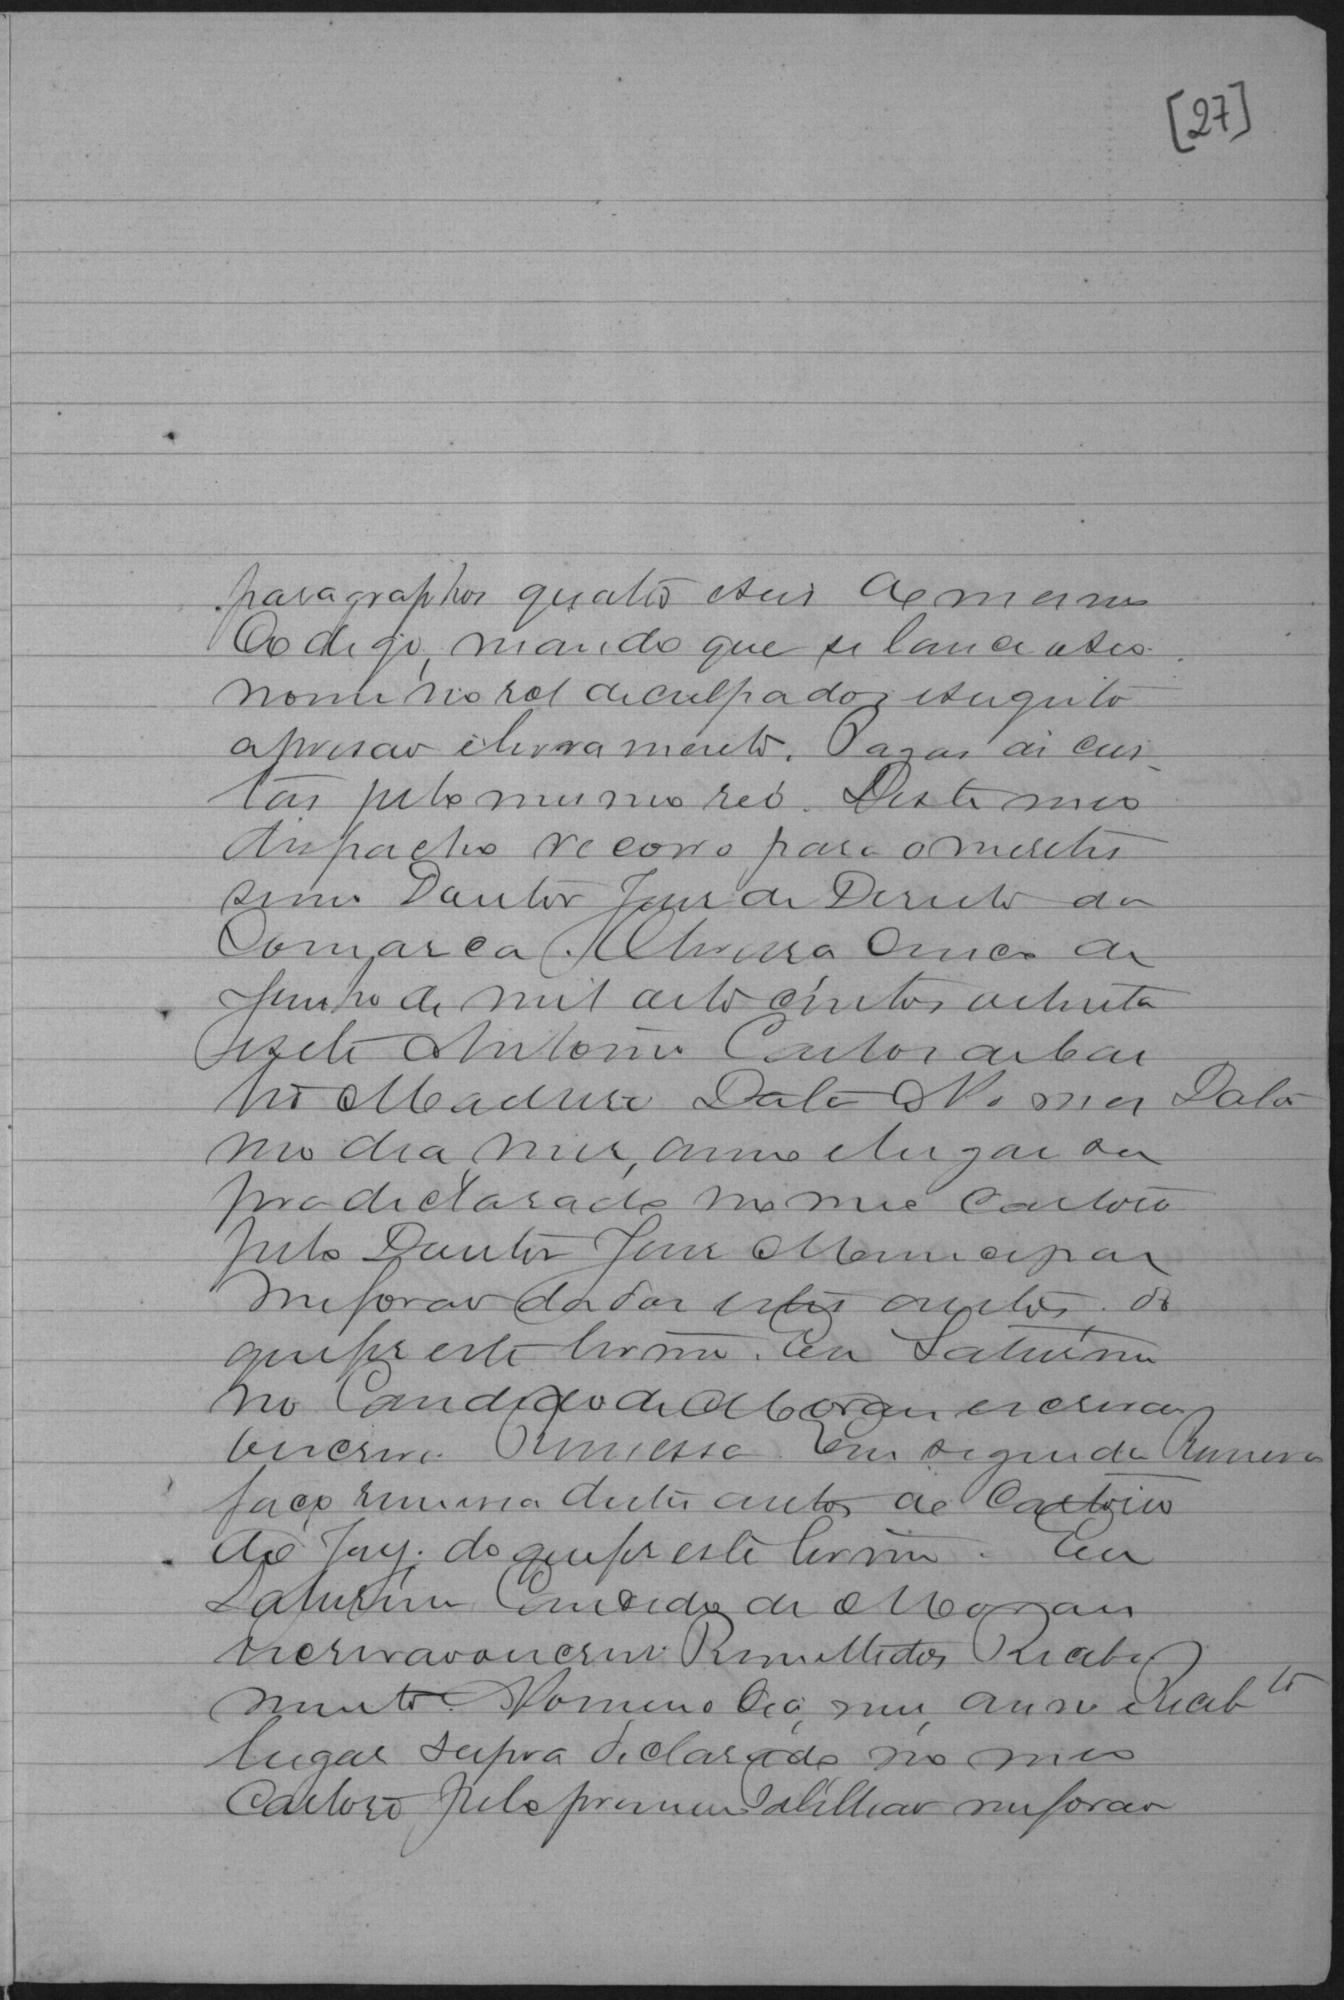 [27]
paragraphos quatro e seis do mesmo
Codigo, mando que se lance o seo
nome no rol de culpados e sugeito
a prisao e livramento. Pagas as cus-
tas pelo mesmo reo. Deste meo
dispacho recorro para o meretis
simo Doutor Juiz de Direito da
Comarca. Oliveira onze de
Junho de mil oito centos oitenta
e sete Antonio Carlos de Cas
tro Madeira Data No mes Data
mo dia, mes, anno e lugar su
pra declarado no meo cartorio
pelo Doutor Juiz Municipal
me forao dados estes autos, do
que fiz este termo. Eu Saturni
no Candido de Moraes escrivao
o escrevi. Remessa Em seguida Remessa
faço remessa destes autos ao Cartorio
do Jury. do que fiz este termo. Eu
Saturnino Candido de Moraes
escrivao o escrevi. Remettidos Recebi
mento No mesmo dia, mes, anno e Recebto
lugar supra declarado no meo
Cartorio pelo primeiro Tabelliao me forao